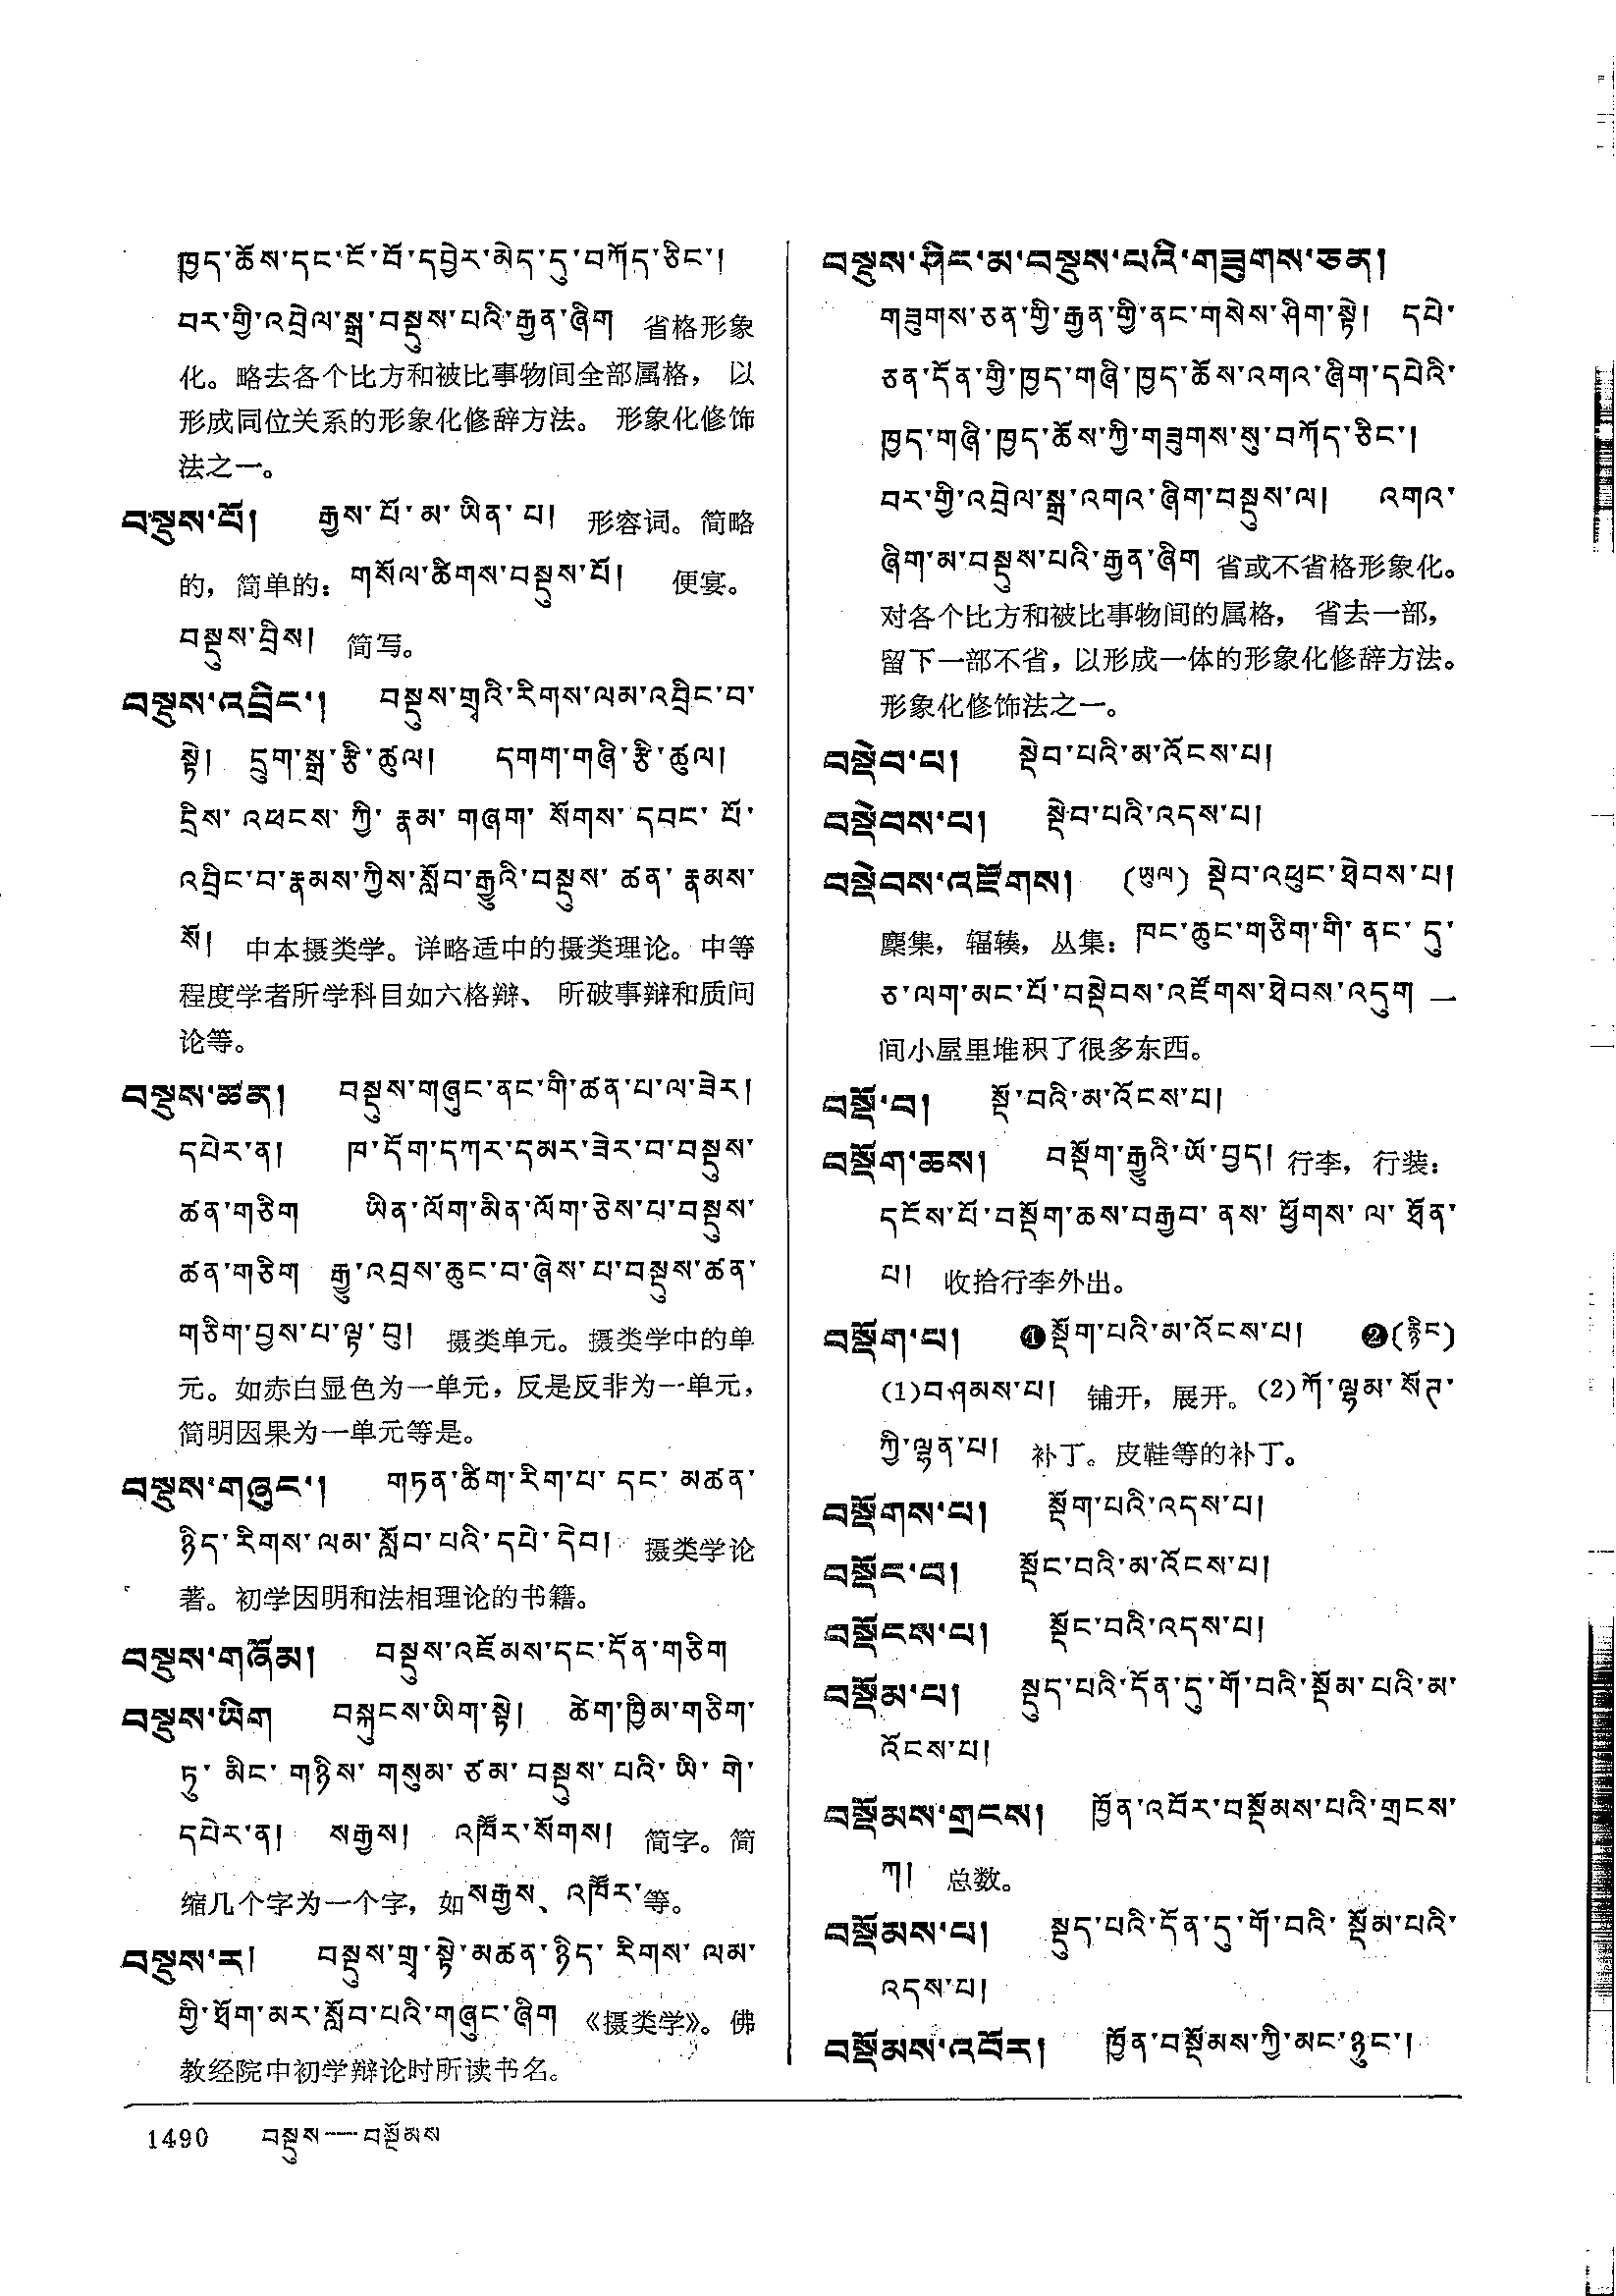 ཁྱད་ཆོས་དང་ངོ་བོ་དབྱེར་མེད་དུ་བཀོད་ཅིང་།
བར་གྱི་འབྲེལ་སྒྲ་བསྡུས་པའི་རྒྱན་ཞིག 省格形象
化。略去各个比方和被比事物间全部属格， 以
形成同位关系的形象化修辞方法。 形象化修饰
法之一。
བསྡུས་པོ། རྒྱས་པོ་མ་ཡིན་པ། 形容词。简略
的，简单的：གསོལ་ཚིགས་བསྡུས་པོ། 便宴。
བསྡུས་བྲིས། 简写。
བསྡུས་འབྲིང་། བསྡུས་གྲྭའི་རིགས་ལམ་འབྲིང་བ་
སྟེ། དྲུག་སྒྲ་རྩི་ཚུལ། དགག་གཞི་རྩི་ཚུལ།
དྲིས་འཕངས་ཀྱི་རྣམ་གཞག་སོགས་དབང་པོ་
འབྲིང་བ་རྣམས་ཀྱིས་སློབ་རྒྱུའི་བསྡུས་ཚན་རྣམས་
སོ། 中本摄类学。详略适中的摄类理论。中等
程度学者所学科目如六格辩、 所破事辩和质问
论等。
བསྡུས་ཚན། བསྡུས་གཞུང་ནང་གི་ཚན་པ་ལ་ཟེར།
དཔེར་ན། ཁ་དོག་དཀར་དམར་ཟེར་བ་བསྡུས་
ཚན་གཅིག ཡིན་ལོག་མིན་ལོག་ཅེས་པ་བསྡུས་
ཚན་གཅིག རྒྱུ་འབྲས་ཆུང་བ་ཞེས་པ་བསྡུས་ཚན་
གཅིག་བྱས་པ་ལྟ་བུ། 摄类单元。摄类学中的单
元。如赤白显色为一单元，反是反非为一单元，
简明因果为一单元等是。
བསྡུས་གཞུང་། གཏན་ཚིག་རིག་པ་དང་མཚན་
ཉིད་རིགས་ལམ་སློབ་པའི་དཔེ་དེབ། 摄类学论
著。初学因明和法相理论的书籍。
བསྡུས་གཞོམ། བསྡུས་འཇོམས་དང་དོན་གཅིག
བསྡུས་ཡིག བསྐུངས་ཡིག་སྟེ། ཚེག་ཁྱིམ་གཅིག་
ཏུ་མིང་གཉིས་གསུམ་ཙམ་བསྡུས་པའི་ཡི་གེ་
དཔེར་ན། སརྒྱས། འཁོོར་སོགས། 简字。简
缩几个字为一个字，如སརྒྱས、འཁོོར་等。
བསྡུས་ར། བསྡུས་གྲྭ་སྟེ་མཚན་ཉིད་རིགས་ལམ་
གྱི་ཐོག་མར་སློབ་པའི་གཞུང་ཞིག 《摄类学》。佛
教经院中初学辩论时所读书名。
བསྡུས་ཤིང་མ་བསྡུས་པའི་གཟུགས་ཅན།
གཟུགས་ཅན་གྱི་རྒྱན་གྱི་ནང་གསེས་ཤིག་སྟེ། དཔེ་
ཅན་དོན་གྱི་ཁྱད་གཞི་ཁྱད་ཆོས་འགའ་ཞིག་དཔེའི་
ཁྱད་གཞི་ཁྱད་ཆོས་ཀྱི་གཟུགས་སུ་བཀོད་ཅིང་།
བར་གྱི་འབྲེལ་སྒྲ་འགའ་ཞིག་བསྡུས་ལ། འགའ་
ཞིག་མ་བསྡུས་པའི་རྒྱན་ཞིག 省或不省格形象化。
对各个比方和被比事物间的属格， 省去一部，
留下一部不省，以形成一体的形象化修辞方法。
形象化修饰法之一。
བསྡེབ་པ། སྡེབ་པའི་མ་འོངས་པ།
བསྡེབས་པ། སྡེབ་པའི་འདས་པ།
བསྡེབས་འཛོགས། (ཡུལ) སྡེབ་འཕུང་ཐེབས་པ།
麇集，辐辏，丛集：ཁང་ཆུང་གཅིག་གི་ནང་དུ་
ཅ་ལག་མང་པོ་བསྡེབས་འཛོགས་ཐེབས་འདུག 一
间小屋里堆积了很多东西。
བསྡོ་བ། སྡོ་བའི་མ་འོངས་པ།
བསྡོག་ཆས། བསྡོག་རྒྱུའི་ཡོ་བྱད། 行李，行装：
དངོས་པོ་བསྡོག་ཆས་བརྒྱབ་ནས་ཕྱོགས་ལ་ཐོན་
པ། 收拾行李外出。
བསྡོག་པ། ❶སྡོག་པའི་མ་འོངས་པ། ❷(རྙིང)
(1)བཤམས་པ། 铺开，展开。(2)ཀོ་ལྷམ་སོཊ་
ཀྱི་ལྷན་པ། 补丁。皮鞋等的补丁。
བསྡོགས་པ། སྡོག་པའི་འདས་པ།
བསྡོང་བ། སྡོང་བའི་མ་འོངས་པ།
བསྡོངས་པ། སྡོང་བའི་འདས་པ།
བསྡོམ་པ། སྡུད་པའི་དོན་དུ་གོ་བའི་སྡོམ་པའི་མ་
འོངས་པ།
བསྡོམས་གྲངས། ཁྱོན་འབོར་བསྡོམས་པའི་གྲངས་
ཀ། 总数。
བསྡོམས་པ། སྡུད་པའི་དོན་དུ་གོ་བའི་སྡོམ་པའི་
འདས་པ།
བསྡོམས་འབོར། ཁྱོན་བསྡོམས་ཀྱི་མང་ཉུང་།
1490 བསྡུས——བསྡོམས